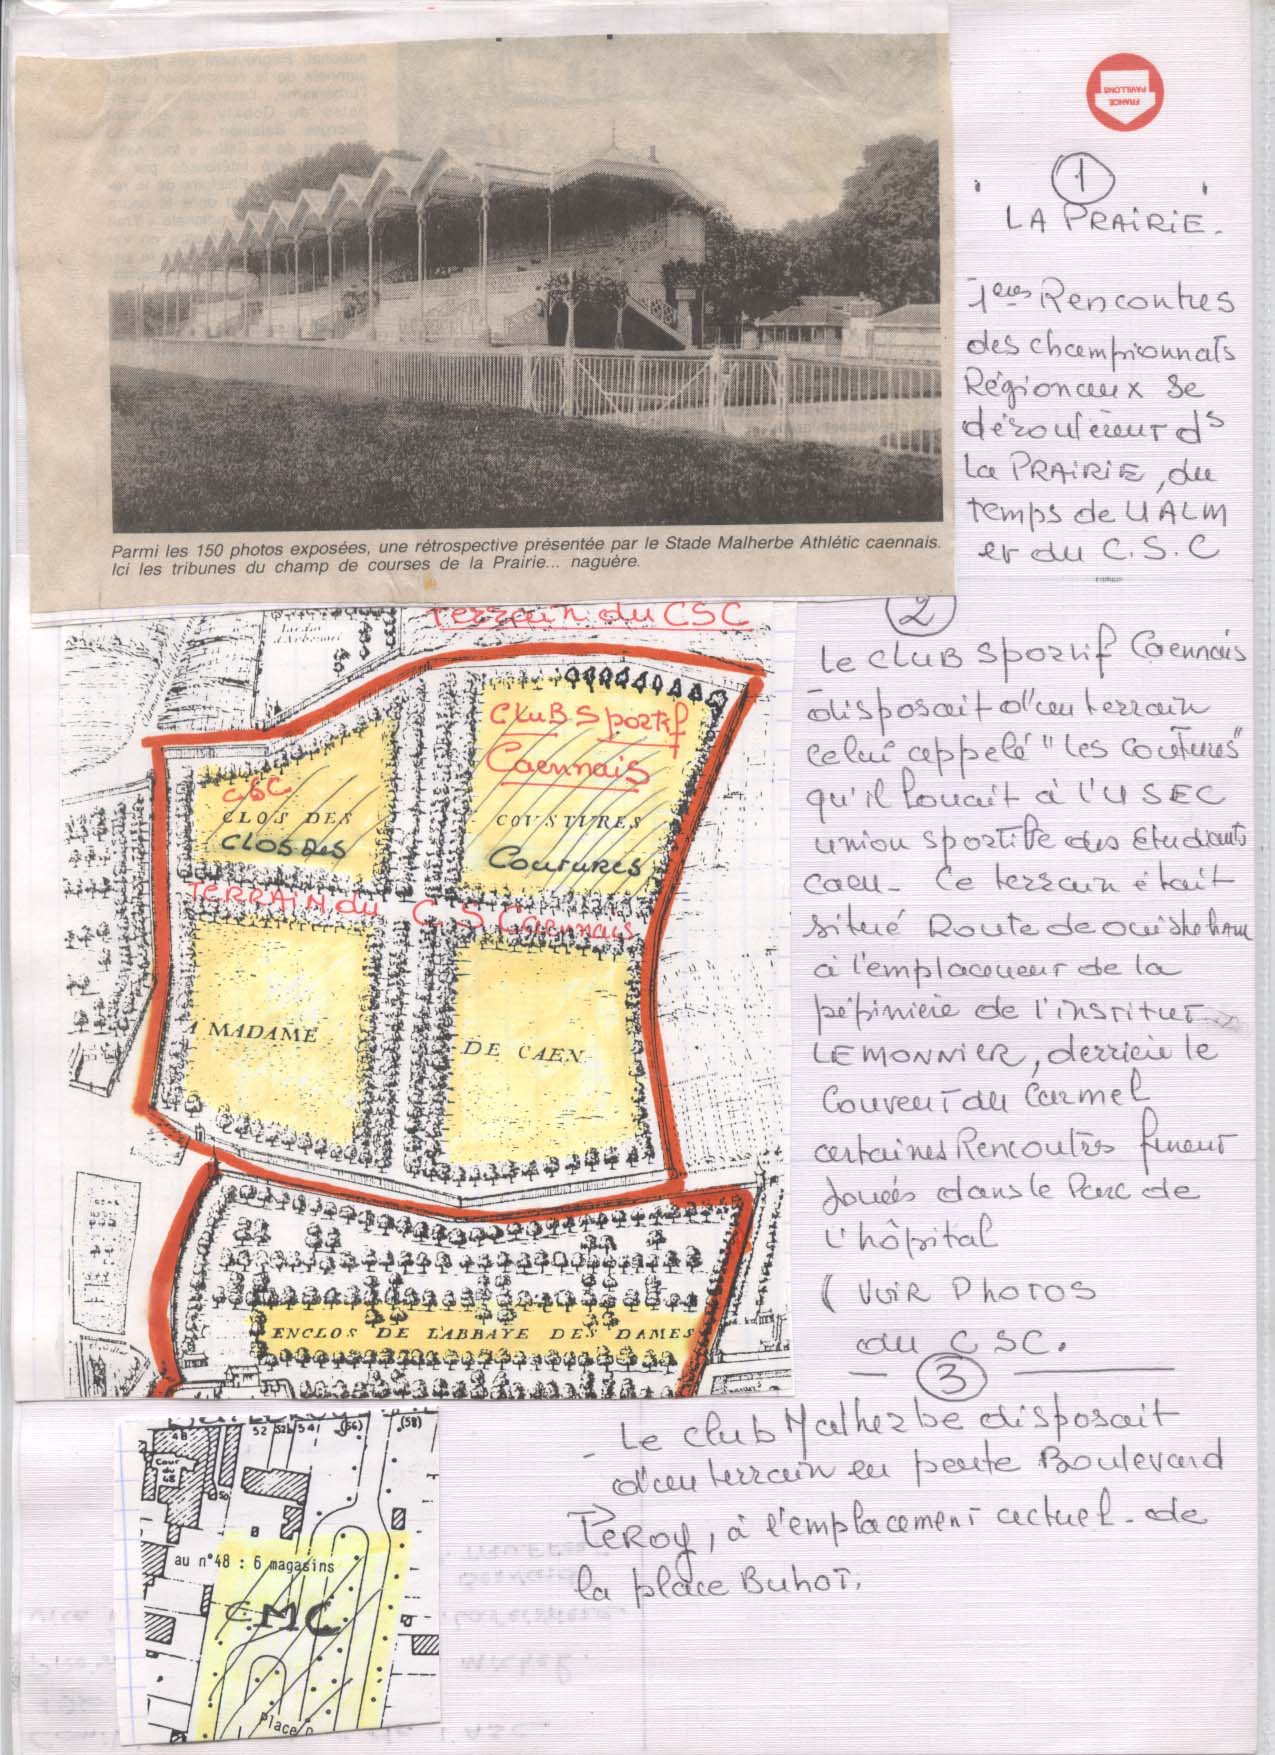 FRANCE
PAVILLONS
1
LA PRAIRIE.
1ères Rencontres
des championnats
Régionaux se
déroulèrent ds
La PRAIRIE, du
temps de UALM
et du C.S.C
Parmi les 150 photos exposées, une rétrospective présentée par le Stade Malherbe Athlétic caennais.
Ici les tribunes du champ de courses de la Prairie... naguère.
2
Le CLUB Sportif Caennais
disposait d'un terrain
celui appelé "Les Coutures"
qu'il louait à l'USEC
union sportive des Etudiants
Caen - Ce terrain était
situé Route de Ouistreham
à l'emplacement de la
pépinière de l'institut
LEMONNIER, derrière le
Couvent du Carmel
certaines Rencontres furent
jouées dans le Parc de
l'hôpital
( VOIR PHOTOS
du CSC.
Terrain du CSC
CLUB Sportif
Caennais
CSC
CLOS DES
CLOS DES
COUSTURES
Coutures
TERRAIN du C S Caennais
A MADAME
DE CAEN
ENCLOS DE L'ABBAYE DES DAMES
3
Le club Malherbe disposait
d'un terrain en pente Boulevard
Leroy, à l'emplacement actuel de
la place Buhot.
48
52
52b
54
(56)
(58)
Cour
du
48
50
au n°48 : 6 magasins
CMC
Place